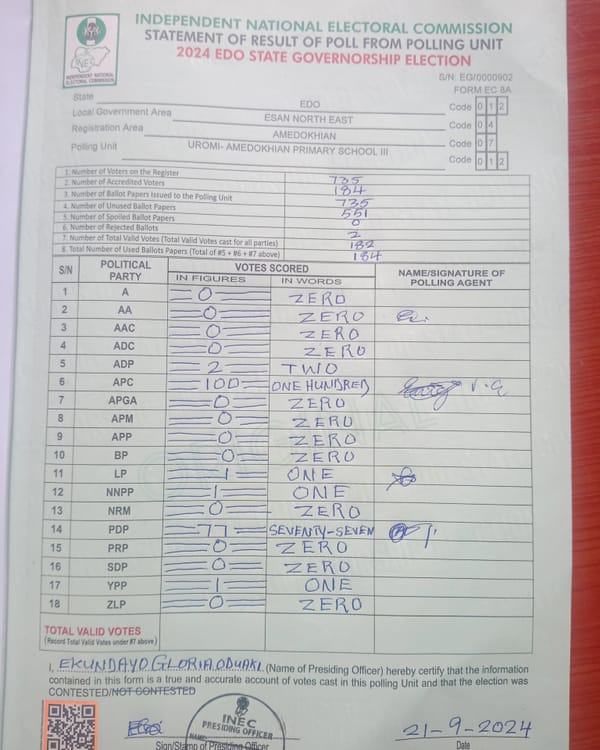 INDEPENDENT NATIONAL ELECTORAL COMMISSION
STATEMENT OF RESULT OF POLL FROM POLLING UNIT
2024 EDO STATE GOVERNORSHIP ELECTION
INEC
INDEPENDENT NATIONAL
ELECTORAL COMMISSION
S/N: EG/0000902
FORM EC 8A
State EDO Code 0 1 2
Local Government Area ESAN NORTH EAST Code 0 4
Registration Area AMEDOKHIAN Code 0 7
Polling Unit UROMI- AMEDOKHIAN PRIMARY SCHOOL III Code 0 1 2
1. Number of Voters on the Register 735
2. Number of Accredited Voters 184
3. Number of Ballot Papers Issued to the Polling Unit 735
4. Number of Unused Ballot Papers 551
5. Number of Spoiled Ballot Papers 0
6. Number of Rejected Ballots 2
7. Number of Total Valid Votes (Total Valid Votes cast for all parties) 182
8. Total Number of Used Ballots Papers (Total of #5 + #6 + #7 above) 184
S/N POLITICAL PARTY VOTES SCORED NAME/SIGNATURE OF POLLING AGENT
IN FIGURES IN WORDS
1 A 0 ZERO
2 AA 0 ZERO
3 AAC 0 ZERO
4 ADC 0 ZERO
5 ADP 2 TWO
6 APC 100 ONE HUNDRED
7 APGA 0 ZERO
8 APM 0 ZERO
9 APP 0 ZERO
10 BP 0 ZERO
11 LP 1 ONE
12 NNPP 1 ONE
13 NRM 0 ZERO
14 PDP 77 SEVENTY-SEVEN
15 PRP 0 ZERO
16 SDP 0 ZERO
17 YPP 1 ONE
18 ZLP 0 ZERO
TOTAL VALID VOTES
(Record Total Valid Votes under #7 above)
I, EKUNDAYO GLORIA ODUAKI (Name of Presiding Officer) hereby certify that the information
contained in this form is a true and accurate account of votes cast in this polling Unit and that the election was
CONTESTED/NOT CONTESTED
INEC
PRESIDING OFFICER
NAME:
21-9-2024
Sign/Stamp of Presiding Officer Date